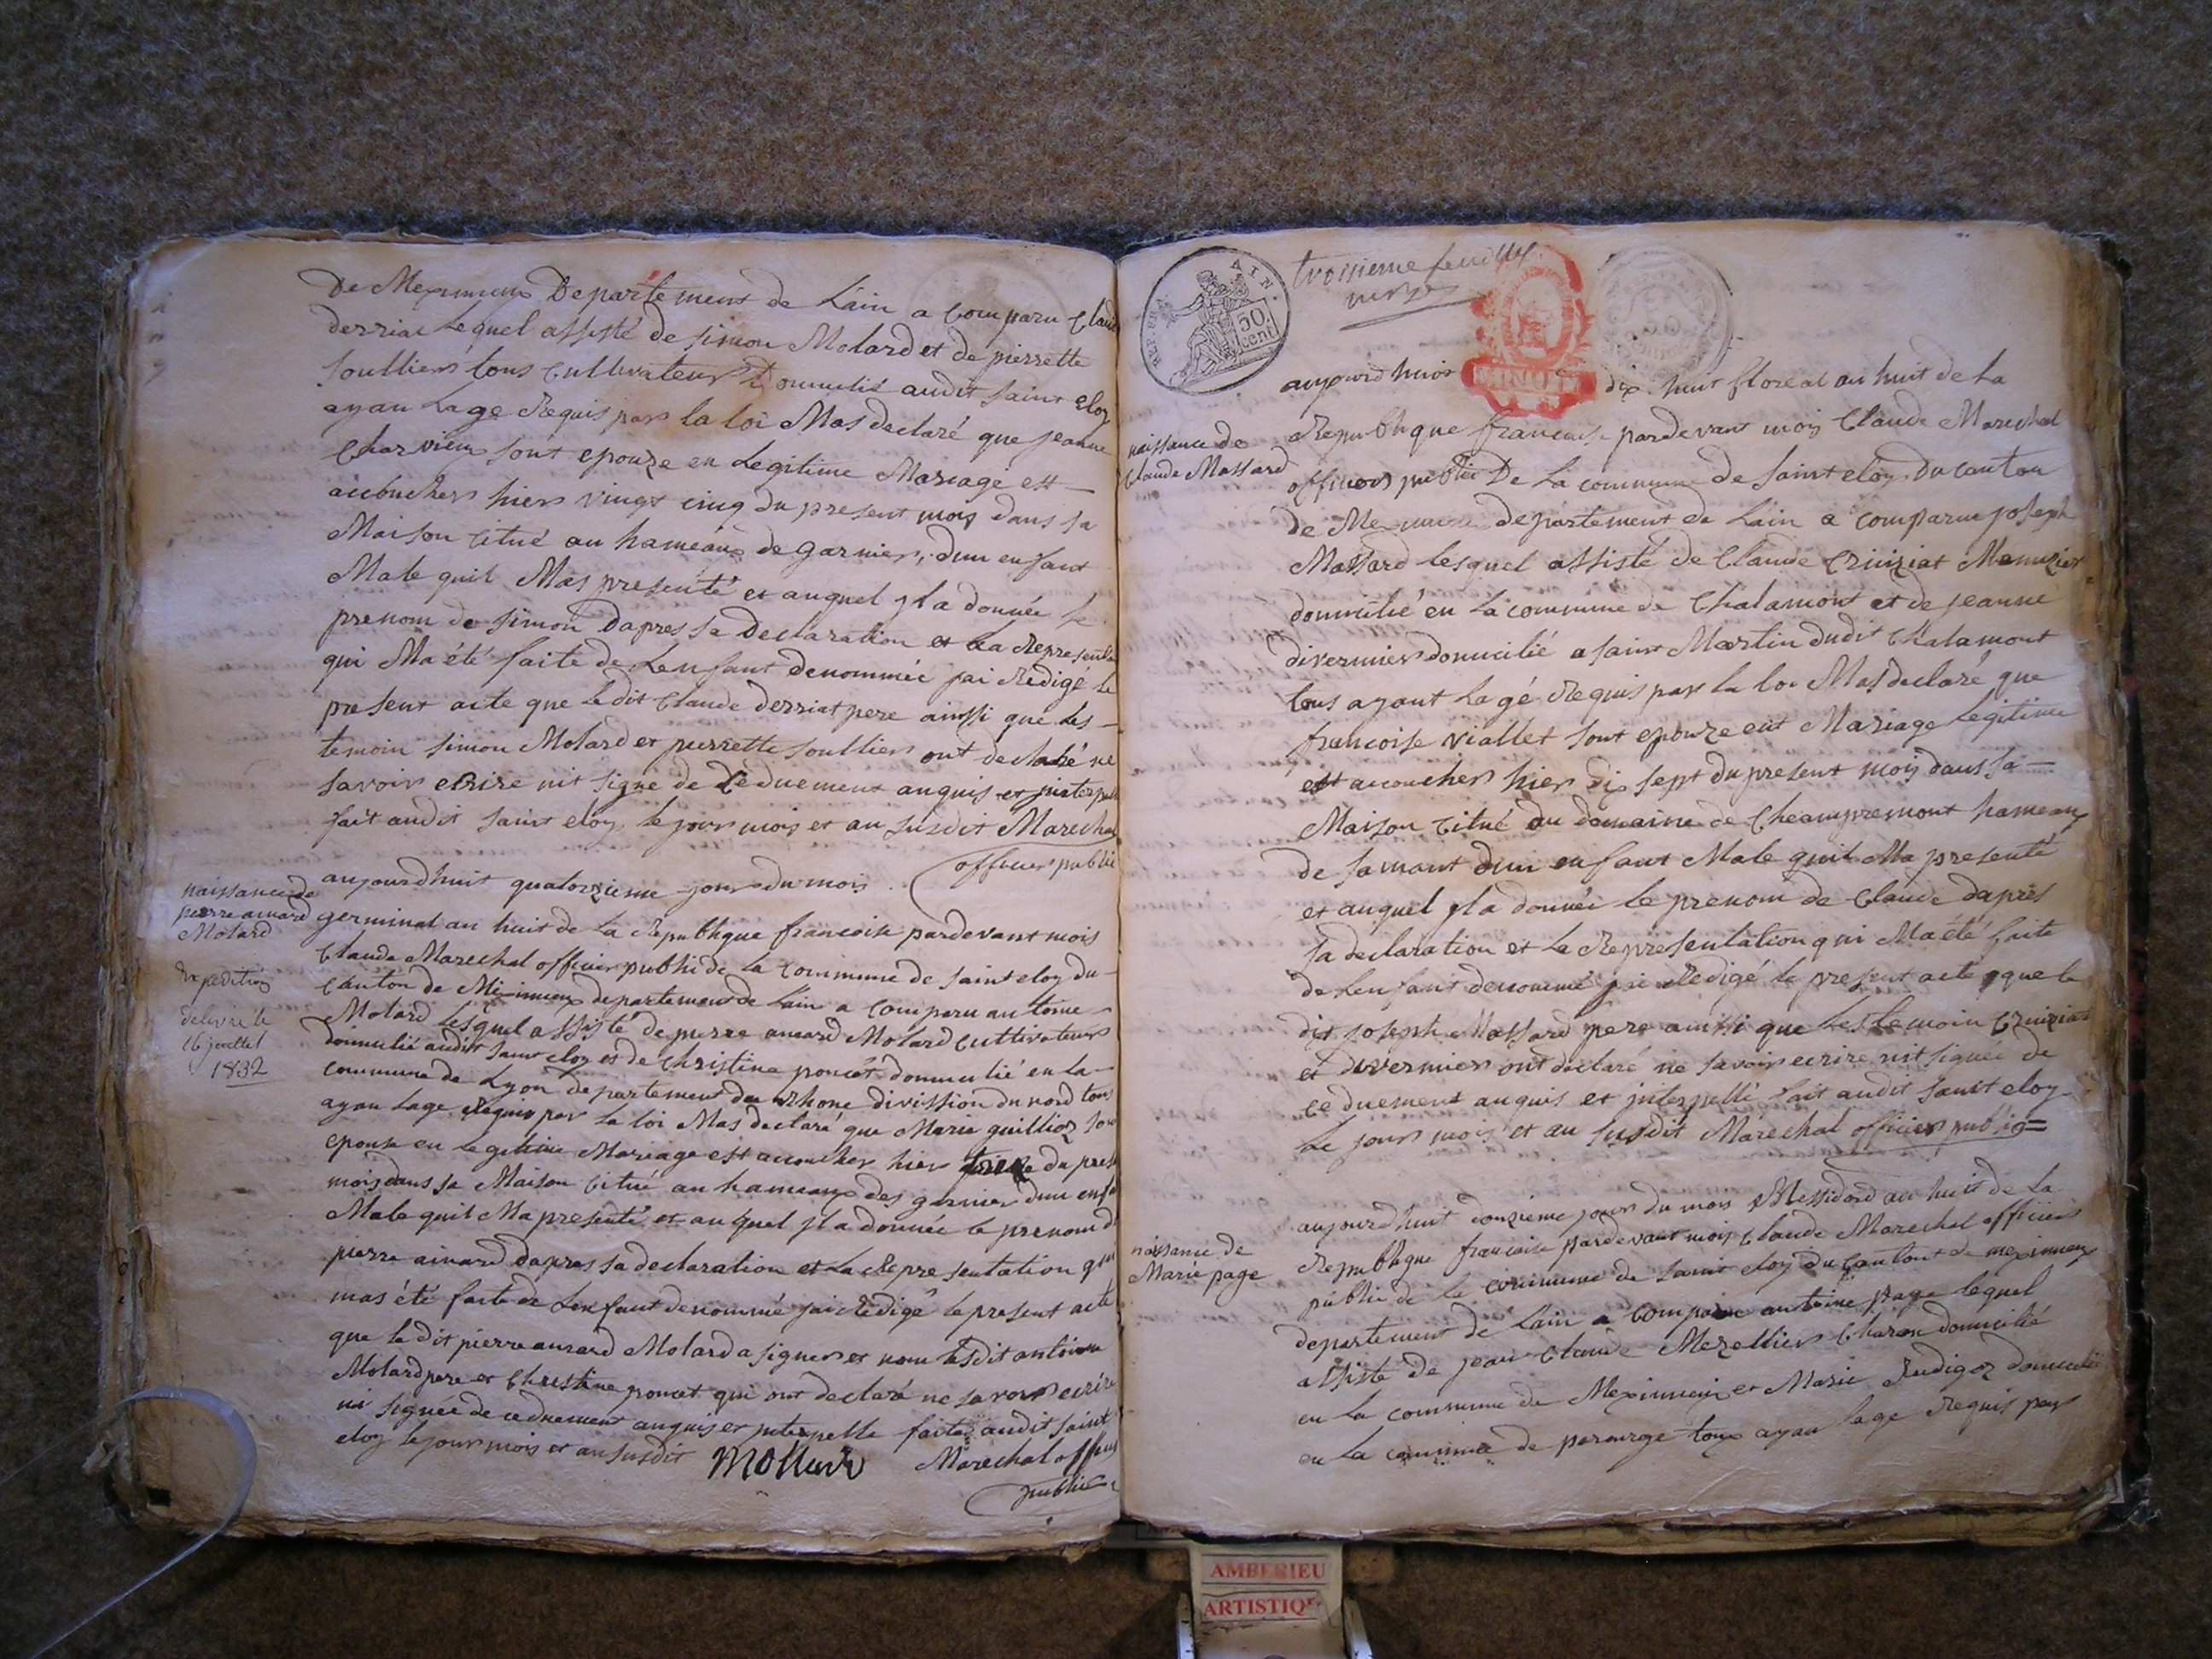 De Meximieux Departement de Lain a comparu Claude
derriat lequel assisté de simon Molard et de pierrette
soulliers tous Cultivateurs Domicilié audit saint eloy
ayan Lage Requis par la loi Mas declaré que jeanne
Charvieux sont epouze en Legitime Mariage est
accouchers hiers vingt cinq du present mois dans sa
Maison Citué au hameaux de garniers, dun enfant
Male quil Mas presenté et auquel yl a donnée le
prenom de simon Dapres sa Declaration et La Represent
qui Ma été faite de Lenfant denommée jai Redigé le
present acte que Ledit Claude derriat pere ainssi que les
temoin simon Molard et pierrette soulliers ont declaré ne
savoirs ecrire nit signe de Ce duement anquis et jnterpellé
fait audit saint eloy le jours mois et an susdit Marechal
officier public
naissance de
pierre aimard
Molard
Expedition
delivré le
16 juillet
1832
aujourdhuit quatorzieme jours du mois
germinal an huit de La Republique francoise pardevant mois
Claude Marechal officier public de La Commune de saint eloy du
Canton de Meximieux departement de Lain a Comparu antoine
Molard lesquel assisté de pierre aimard Molard Cultivateurs
domicilié audit saint eloy et de Christine poncet domicilié en La
commune de Lyon departement du Rhone division du nord tous
ayan Lage Requis par La loi Mas declaré que Marie guillioz sont
epouse en Legitime Mariage est accouchers hier treize du present
mois dans sa Maison Citué au hameaux des garnier dun enfant
Male quil Ma presenté et auquel yl a donnée le prenom de
pierre aimard dapres sa declaration et La Representation qui
mas été faite de Lenfant denommé jai Redigé le present acte
que le dit pierre aimard Molard a signers et non lesdit antoine
Molard pere et Christine poncet qui ont declaré ne savoirs ecrire
ni signée de ce duement anquis et jnterpellé faite audit saint
eloy le jours mois et an susdit Mollard Marechal officier
public
REP. FRA. AIN.
50 cent
troisieme feuillet
verso
aujourdhuit dix huit floreal an huit de La
naissance de
Claude Massard
Republique francoise pardevant mois Claude Marechal
officiers public De La commune de saint eloy du canton
de Meximieux departement de Lain a comparue joseph
Massard lesquel assisté de Claude Cruiziat Menuzier
domicilié en La commune de Chalamont et de jeanne
divernier domicilié a saint Martin dudit Chalamont
tous ayant Lagé Requis par la loi Mas declaré que
francoise viallet sont epouze ent Mariage legitime
est accouchers hier dix sept du present mois dans sa
Maison Citué au domaine de Cheampremont hameaux
de samant dun enfant Male quil Ma presenté
et auquel yl a donnée le prenom de Claude dapres
sa declaration et La Representation qui Ma été faite
de Lenfant denommé jai Redigé le present acte que le
dit joseph Massard pere ainssi que les temoin Cruiziat
et divernier ont declaré ne savoir ecrire nit signée de
ce duement anquis et jnterpellé fait audit saint eloy
Le jours mois et an susdit Marechal officiers public
naissance de
Marie page
aujourdhuit douzieme jours du mois Messidord an huit de La
Republique francoise pardevant mois Claude Marechal officiers
public de la commune de saint eloy du Cantont de meximieux
departement de Lain a comparue antoine page lequel
assiste de jean Claude Mezelliers Charon domicilié
en La commune de Meximieux et Marie Rudigoz domicilié
en La commune de perouge tous ayan Lage Requis par
AMBERIEU
ARTISTIQ